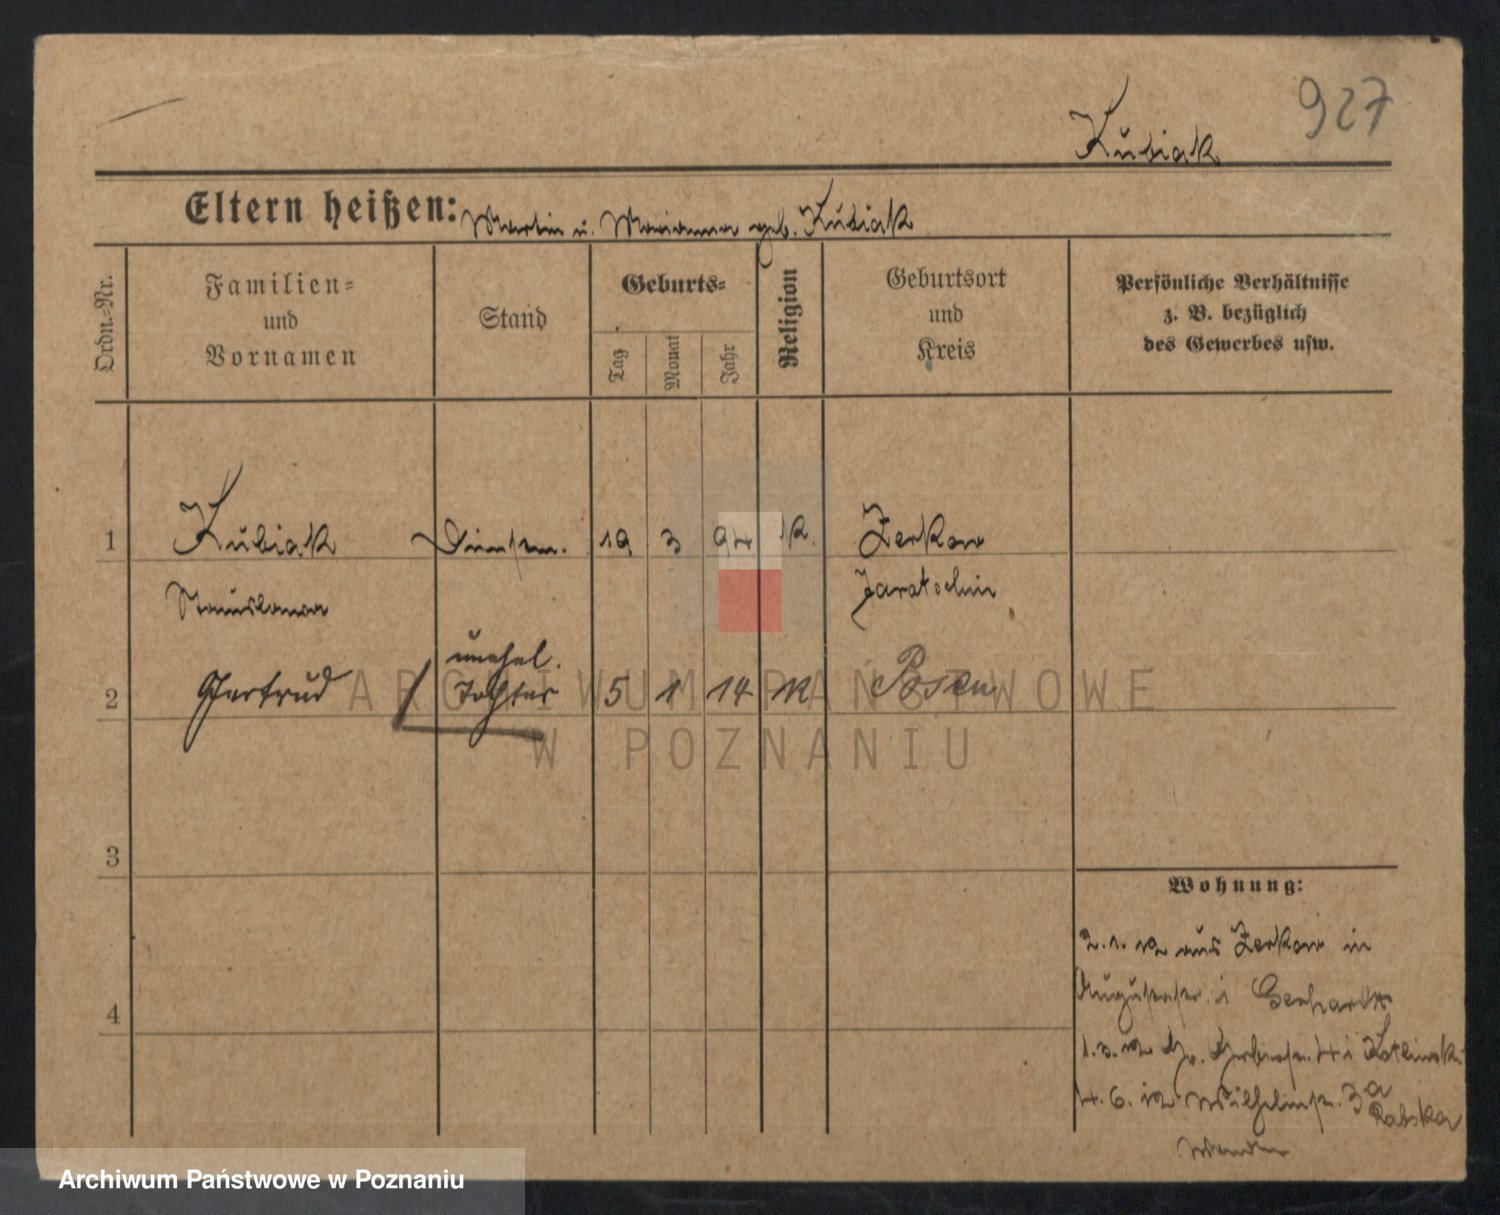 927
Kubiak
Eltern heißen: Martin u. Marianna geb. Kubiak
Ordn.=Nr.
Familien=
und
Vornamen
Stand
Geburts=
Tag
Monat
Jahr
Religion
Geburtsort
und
Kreis
Persönliche Verhältnisse
z. B. bezüglich
des Gewerbes usw.
1 Kubiak 19 3 94 K. Zerkow
Stanislawa Jarotschin
unehel.
2 Gertrud Tochter 5 1 14 K Posen
3
4
Wohnung:
2.1.12 aus Zerkow in
Augustastr. i Gerhardt
1.3.12 Gr. Gerberstr. 4 i Kotlinski
4.6.12 Wilhelmstr. 3a
Rabska
ARCHIWUM PAŃSTWOWE
W POZNANIU
Archiwum Państwowe w Poznaniu